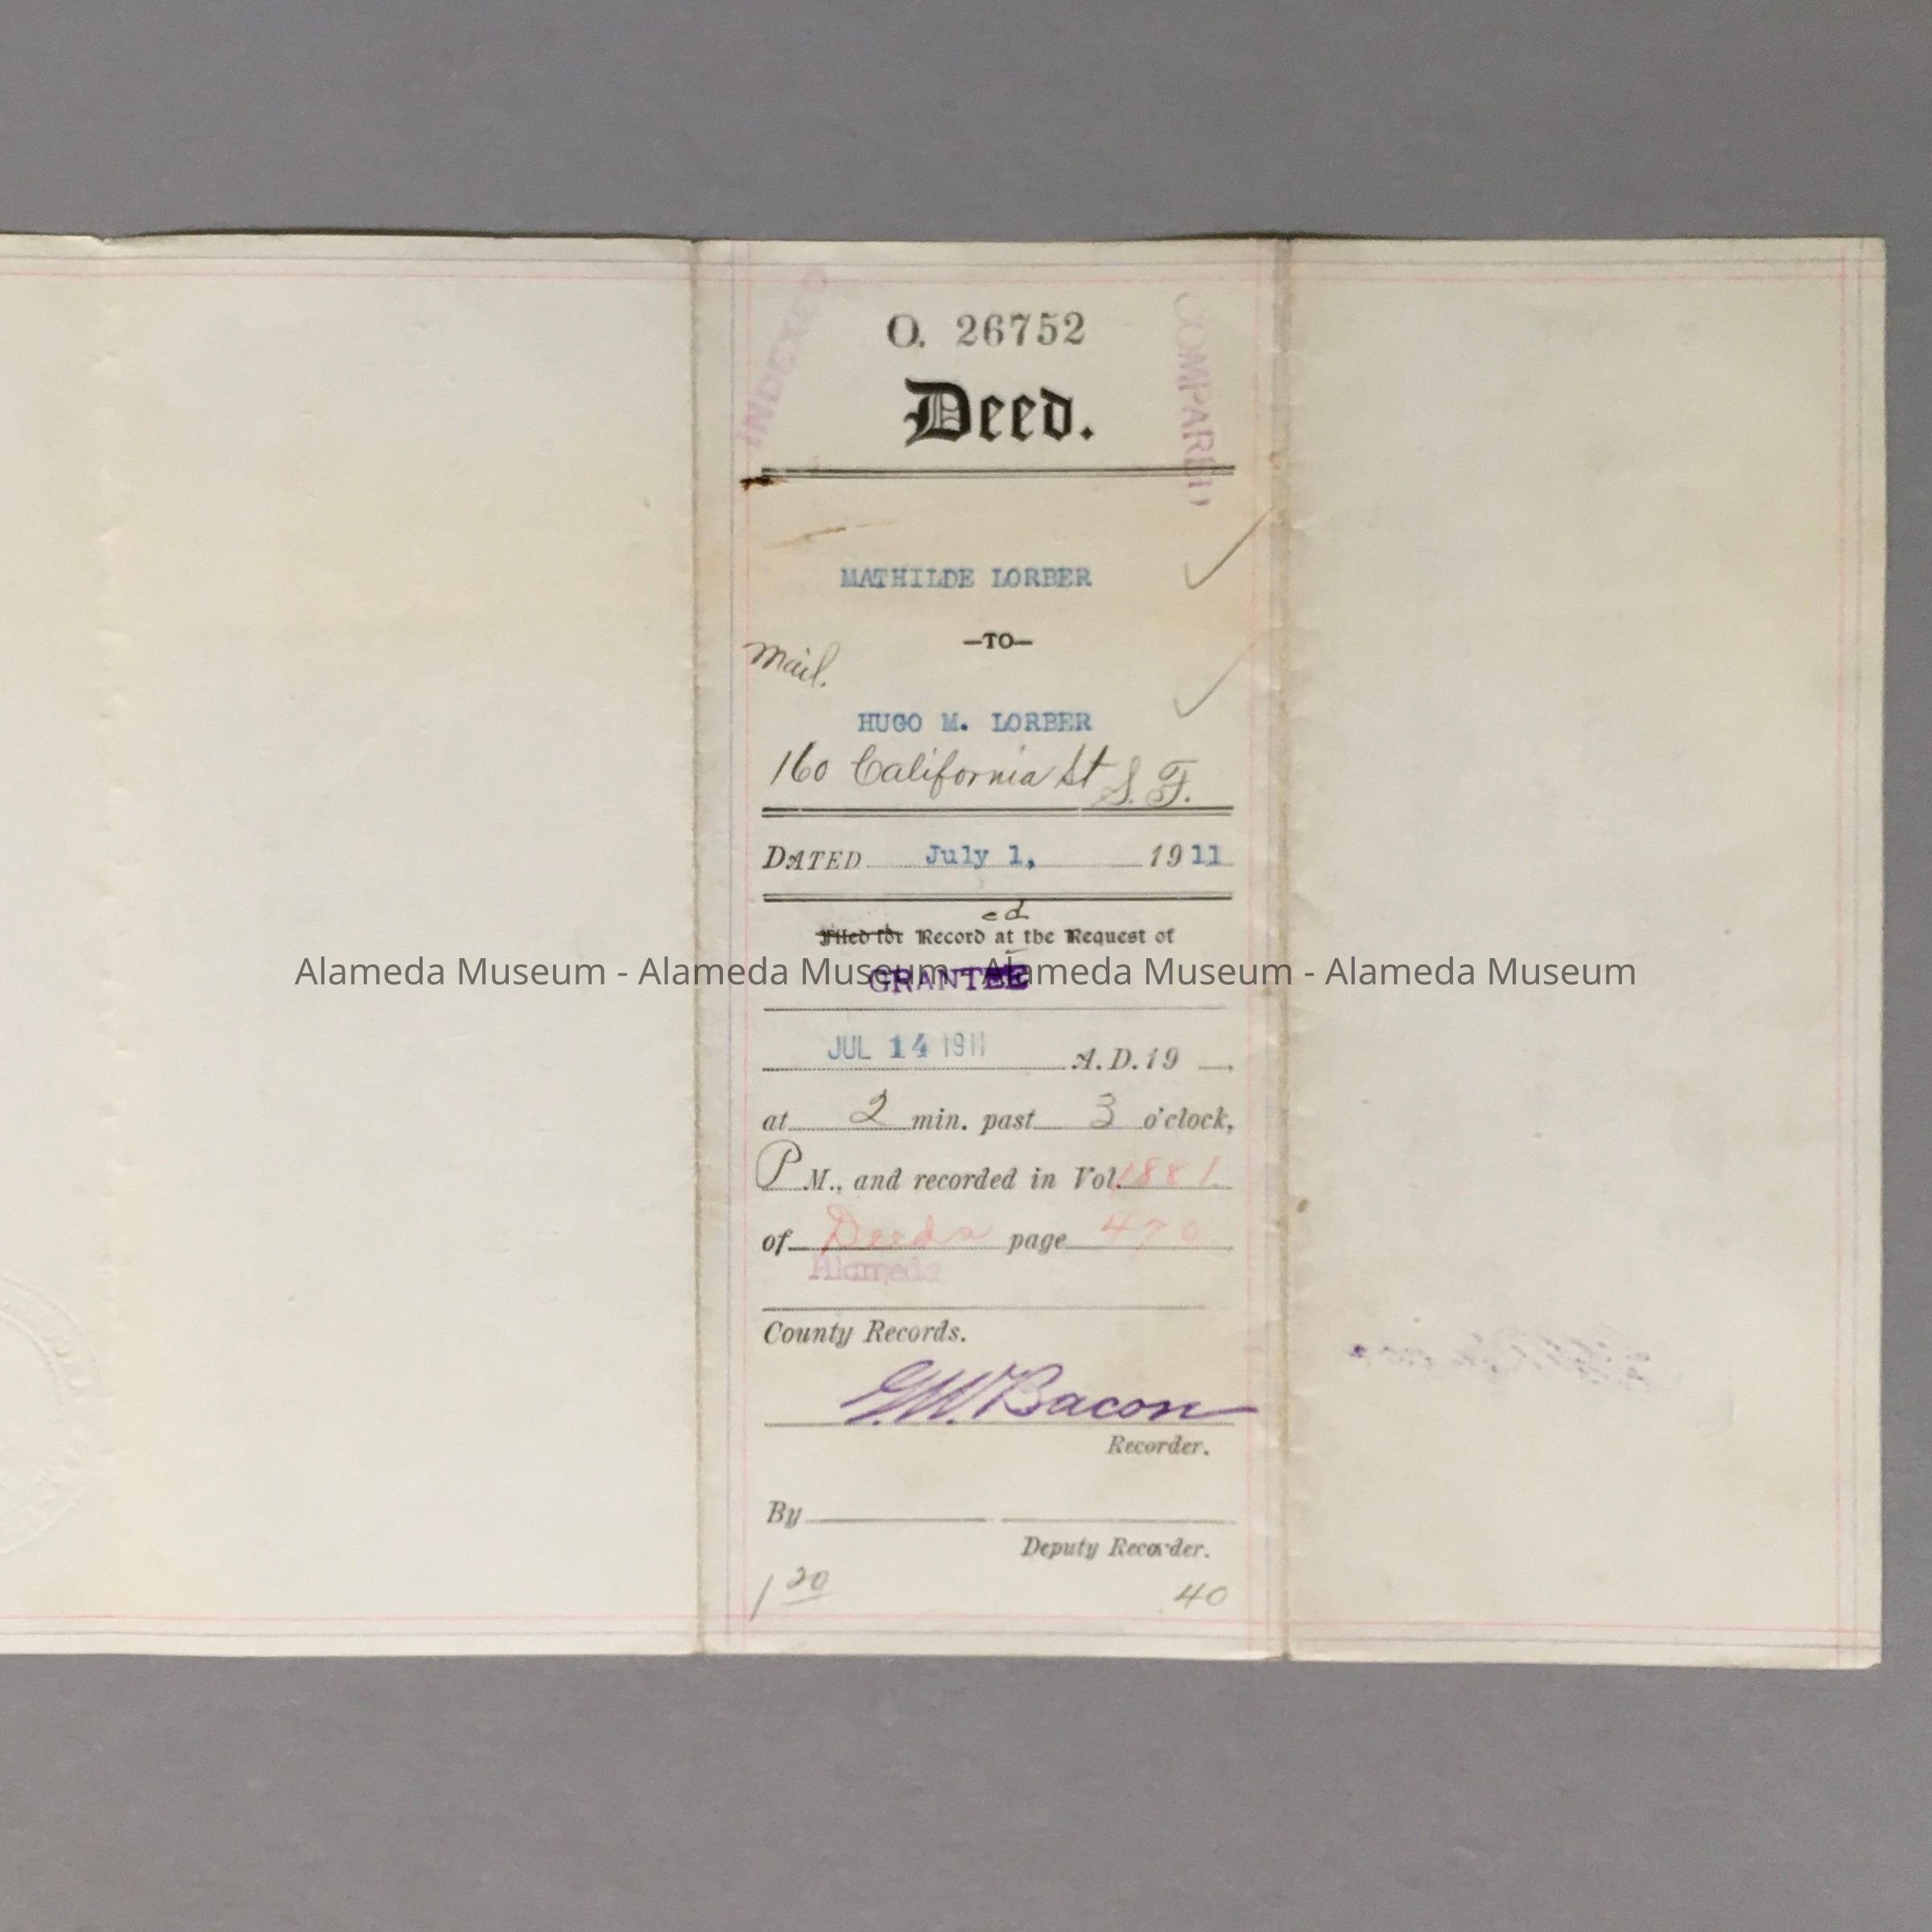 INDEXED
COMPARED
O. 26752
Deed.
MATHILDE LORBER
—TO—
Mail.
HUGO M. LORBER
160 California St S. F.
DATED July 1, 1911
ed
Filed for Record at the Request of
Alameda Museum - Alameda Museum - Alameda Museum - Alameda Museum
GRANTEE
JUL 14 1911 A.D. 19
at 2 min. past 3 o'clock,
P M., and recorded in Vol. 1881.
of Deeds page 470
Alameda
County Records.
G.W. Bacon
Recorder.
By
Deputy Recorder.
1 20 40